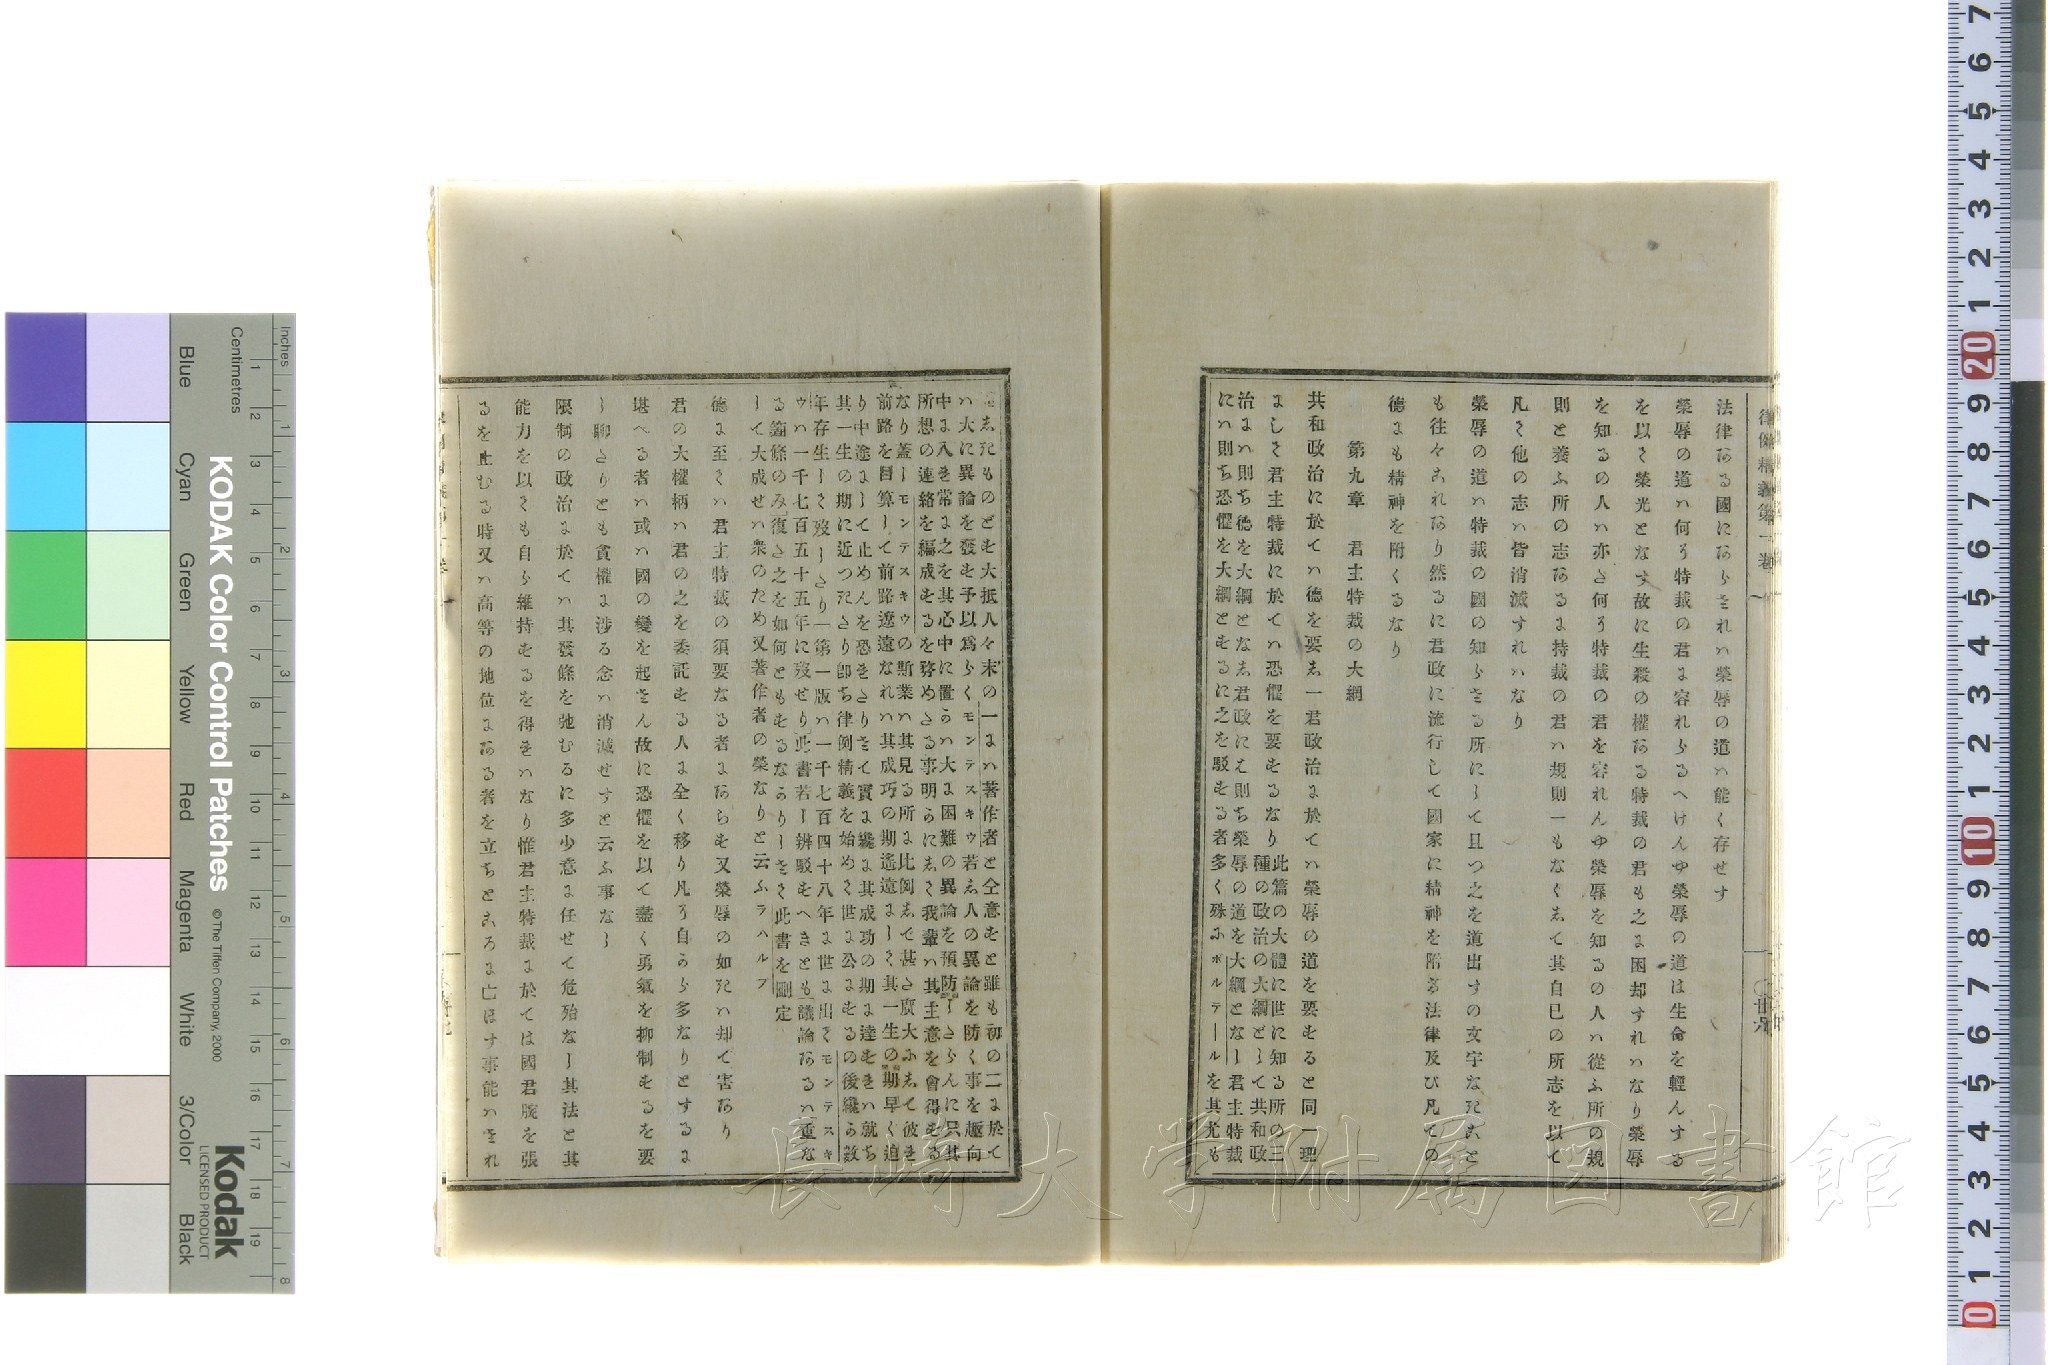 律例精義第一卷
法律ある國にあらされハ榮辱の道ハ能く存せす
榮辱の道ハ何ろ特裁の君ま容れらるへけんや榮辱の道は生命を輕んする
を以て榮光となす故に生殺の權ある特裁の君も之ま困却すれハなり榮辱
を知るの人ハ亦さ何ろ特裁の君を容れんや榮辱を知るの人ハ從ふ所の規
則と養ふ所の志あるま特裁の君ハ規則一もなくして其自已の所志を以て
凡て他の志ハ皆消滅すれハなり
榮辱の道ハ特裁の國の知らさる所にして且つ之を道出すの文字なきこと
も往々これあり然るに君政に流行して國家に精神を附る法律及ひ凡ての
德まも精神を附くるなり
第九章　君主特裁の大綱
共和政治に於てハ德を要し一君政治ま於てハ榮辱の道を要もると同一理
ましく君主特裁に於てハ恐懼を要もるなり
此篇の大體に世に知る所の三
種の政治の大綱として共和政
治まハ則ち德を大綱となし君政にハ則ち榮辱の道を大綱となし君主特裁
にハ則ち恐懼を大綱ともるに之を駁もる者多く殊ふボルテールを其尤も
ハ大に異論を發も予以爲らくモンテスキウ若し人の異論を防く事を趣向
中ま入き常ま之を其心中に置かハ大ま困難の異論を預防しさらんに只其
所想の連絡を編成もるを務めさる事明らにして我輩ハ其主意を會得もる
なり蓋しモンテスキウの斯業ハ其見る所ま比例して甚さ廣大ふして彼き
前路を目算して前路遼遠なれハ其成巧の期遙遠まして其一生の期早く迫
り中途まして止めんを恐きさりきて實ま纔ま其成功の期ま達もきハ就ち
其一生の期に近つきさり卽ち律例精義を始めて世ま公まもるの後纔ら數
年存生して歿しさり第一版ハ一千七百四十八年ま世ま出てモンテスキ
ウハ一千七百五十五年に歿せり此書若し辨駁もへきとも議論あるハ重な
る箇條のみ復さ之を如何とももるなかりしさく此書を刪定
して大成せハ衆のため又著作者の榮なりと云ふラハルプ
德ま至てハ君主特裁の須要なる者まあらも又榮辱の如きハ却て害あり
君の大權柄ハ君の之を委託もる人ま全く移り凡ろ自から多なりとするま
堪へる者ハ或ハ國の變を起さん故に恐懼を以て盡く勇氣を抑制もるを要
し聊さりとも貪權ま渉る念ハ消滅せすと云ふ事なし
限制の政治ま於てハ其發條を弛むるに多少意ま任せて危殆なし其法と其
能力を以ても自ら維持もるを得きハなり惟君主特裁ま於ては國君腕を張
るを止むる時又ハ高等の地位まある者を立ちところま亡ほす事能ハされ
KODAK Color Control Patches
© The Tiffen Company, 2000
Kodak
LICENSED PRODUCT
Inches
Centimetres
Blue
Cyan
Green
Yellow
Red
Magenta
White
3/Color
Black
長崎大学附属図書館